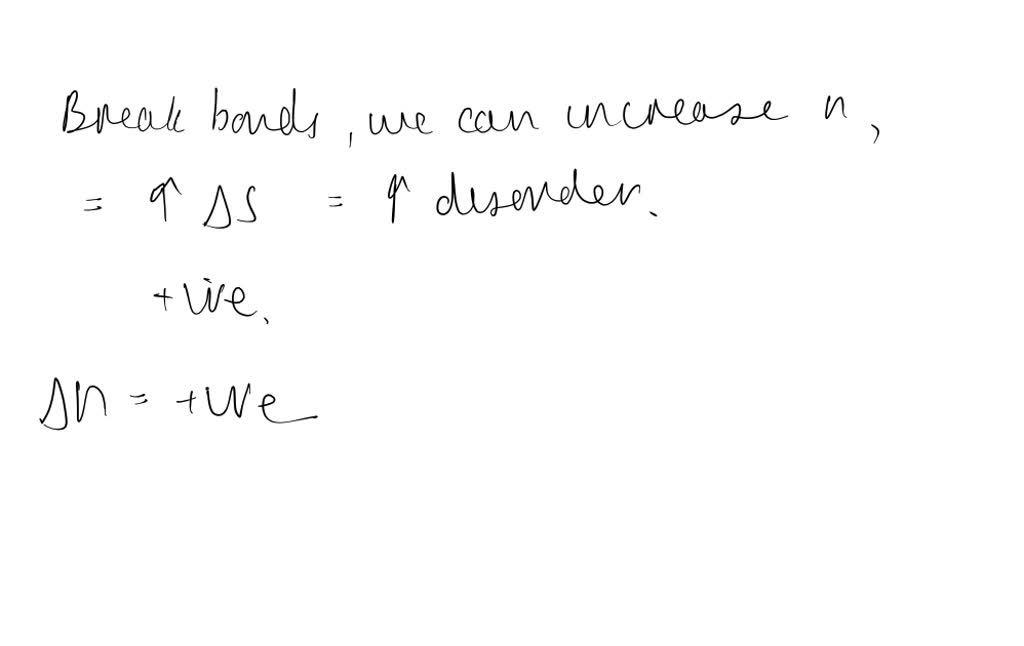 Break bonds, we can increase n,
= ↑ ΔS = ↑ disorder.
+ive.
Δn = +ve